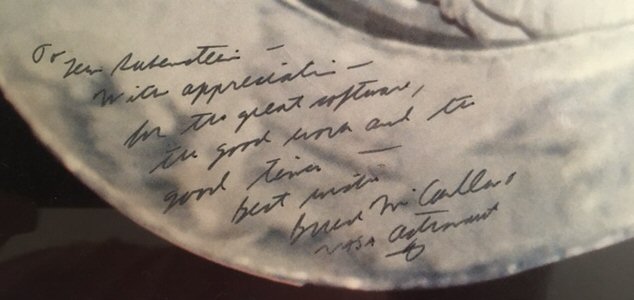 To Rubenstein —
With appreciation —
for the great software,
the good work and the
good times —
best wishes
Bruce McCandless
NASA Astronaut